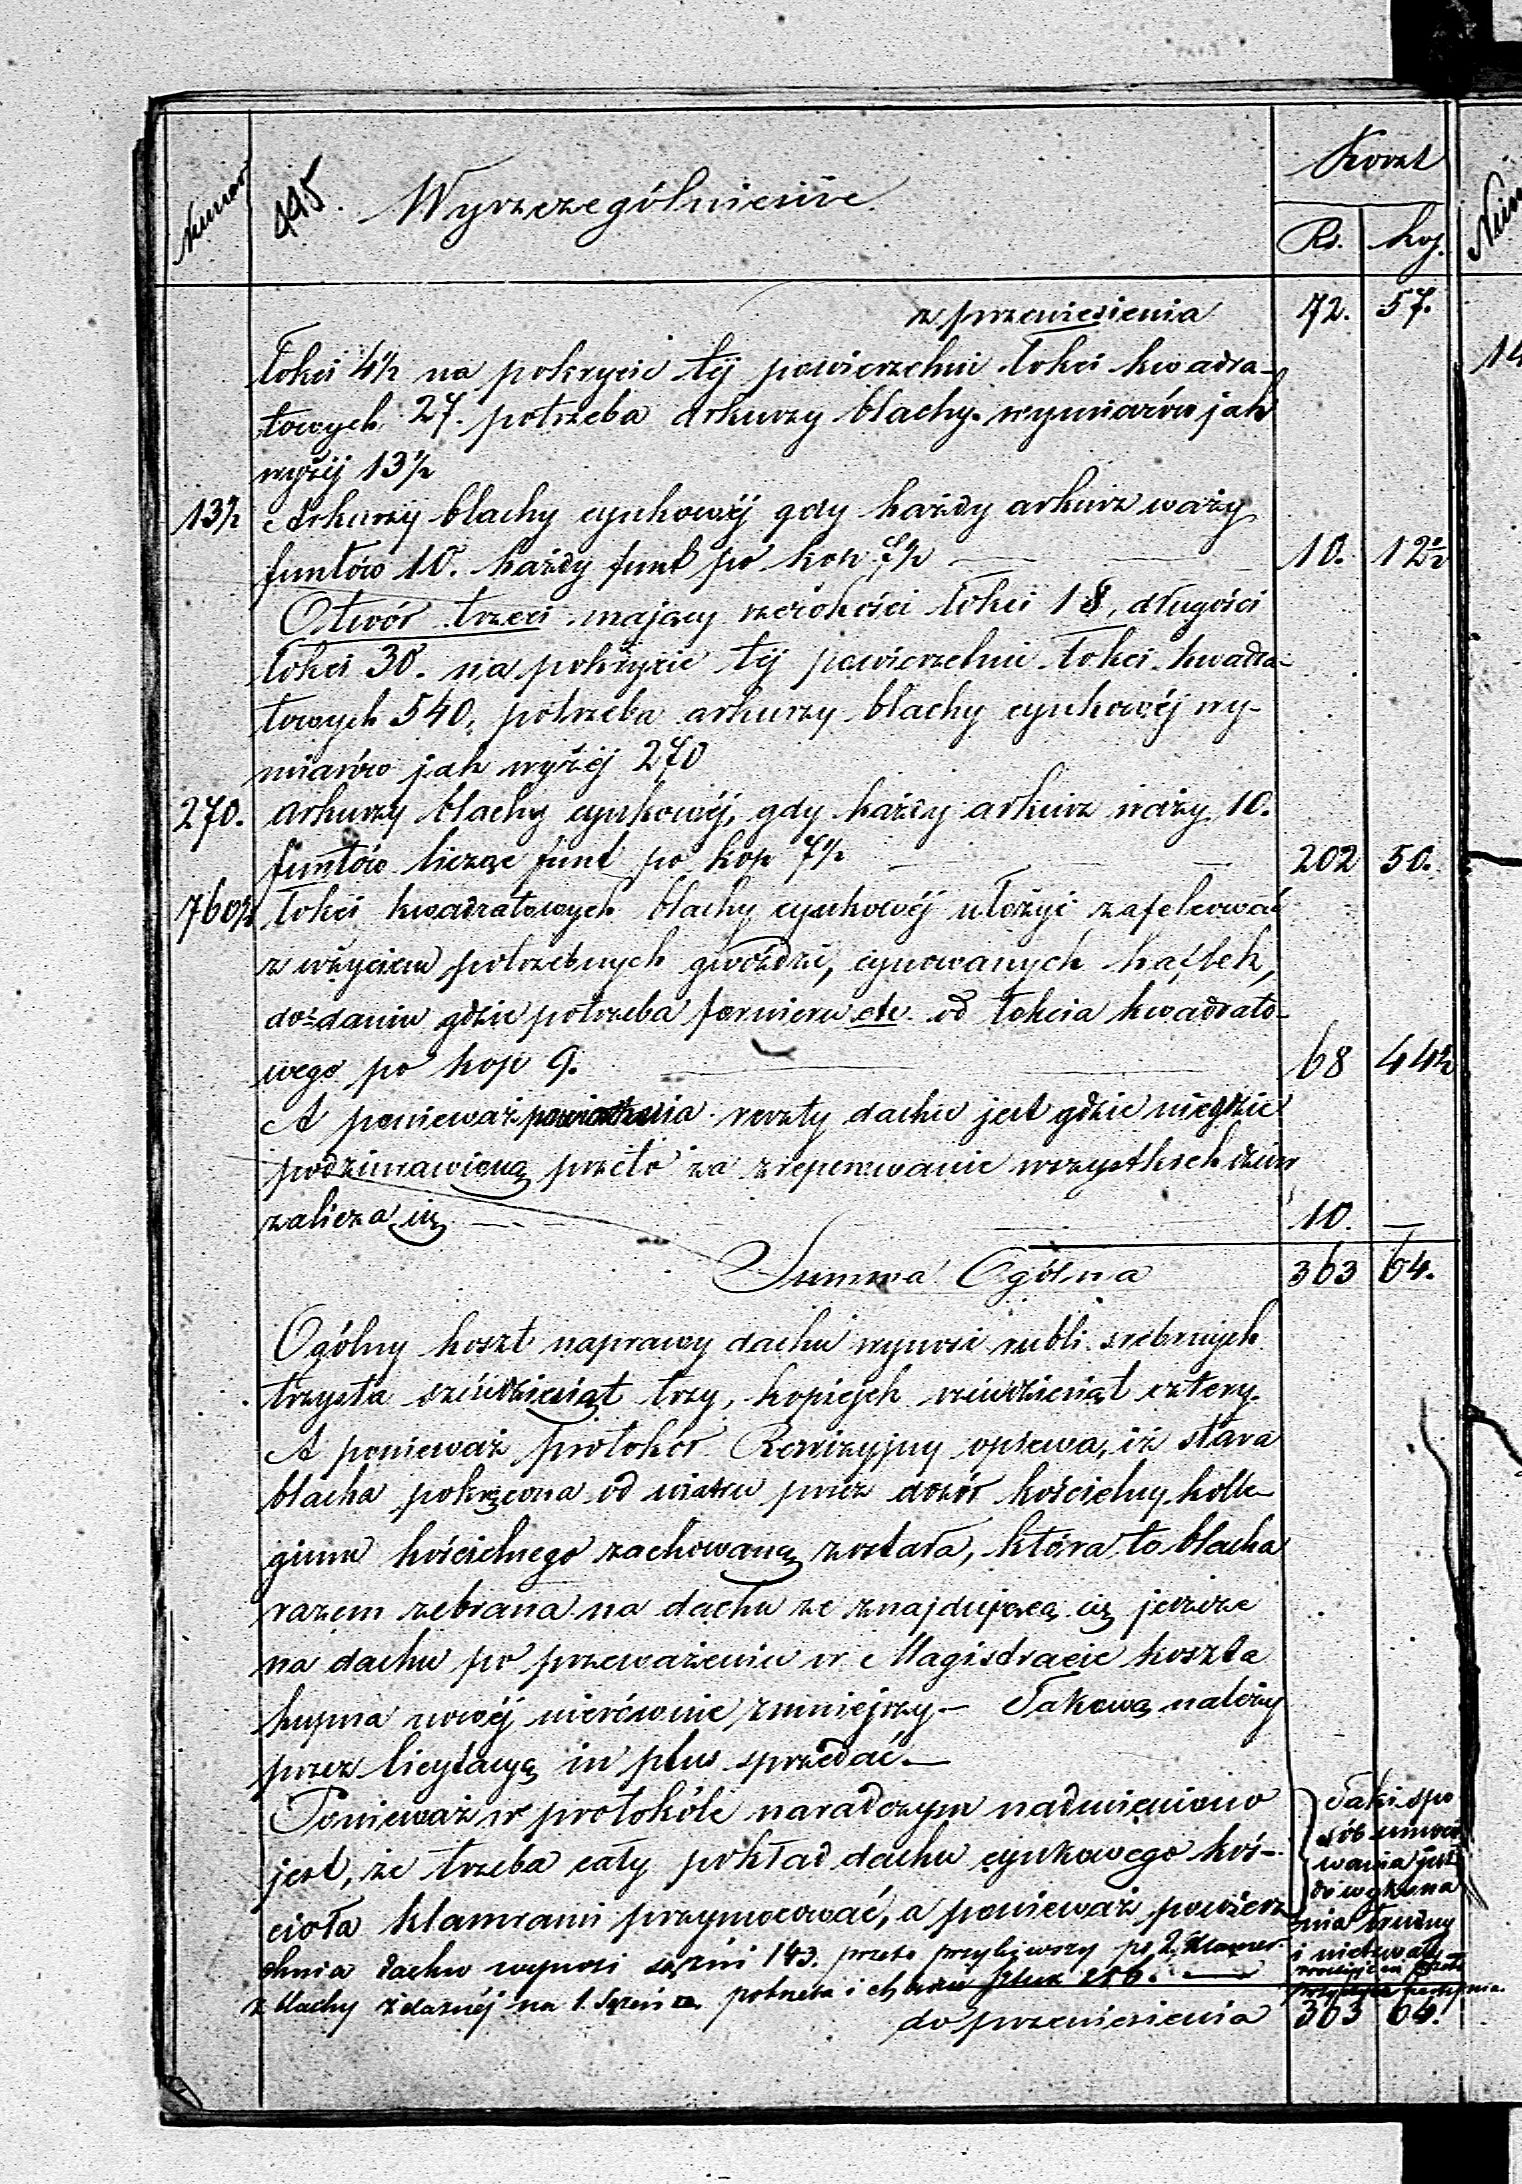 Numer 495. Wyszczególnienie Koszt
Rs. Kop.
z przeniesienia 72. 57.
łokci 4½ na pokrycie téj powierzchni łokci kwadra-
towych 27. potrzeba arkuszy blachy wymiarów jak
wyżéj 13½
13½ Arkuszy blachy cynkowéj gdy każdy arkusz waży
funtów 10. każdy funt po kop 7½ 10. 12½
Otwór trzeci mający szerokości łokci 18, długości
łokci 30. na pokrycie téj powierzchni łokci kwadra-
towych 540, potrzeba arkuszy blachy cynkowéj wy-
miarów jak wyżéj 270
270. arkuszy blachy cynkowéj, gdy każdy arkusz waży 10.
funtów licząc funt po kop 7½ 202 50.
760½ łokci kwadratowych blachy cynkowéj ułożyć zafelcować
z użyciem potrzebnych gwoździ, cynowanych haftek,
dodaniu gdzie potrzeba fornieru etc od łokcia kwadrato-
wego po kop 9. 68 44½
A ponieważ reszty dachu jest gdzie niegdzie
przeto za zreperowanie wszystkich dziur
zalicza się 10. —
Summa Ogólna 363 64.
Ogólny koszt naprawy dachu wynosi rubli srebrnych
trzysta sześćdziesiąt trzy, kopiejek sześćdziesiąt cztery.
A ponieważ protokół Rewizyjny opiewa, iż stara
blacha od wiatru przez dozór kościelny kolle-
gium kościelnego zachowaną została, która to blacha
razem zebrana na dachu ze znajdującą się jeszcze
na dachu po przeważeniu w Magistracie koszta
kupna nowéj nierównie zmniejszy — Takową należy
przez licytacyą in plus sprzedać —
Ponieważ w protokóle naradczym nadmieniono
jest, że trzeba cały pokład dachu cynkowego koś-
cioła klamrami przymocować, a ponieważ powierz
chnia dachu wynosi sążni 143. przeto przybiwszy po 2 klamer
z blachy żelaznéj na 1. Sążeń potrzeba sztuk 286. —
Taki spo
sób umoco
wania jest
do wykona
nia trudny
i nietrwały
do przeniesienia 363 64.
14